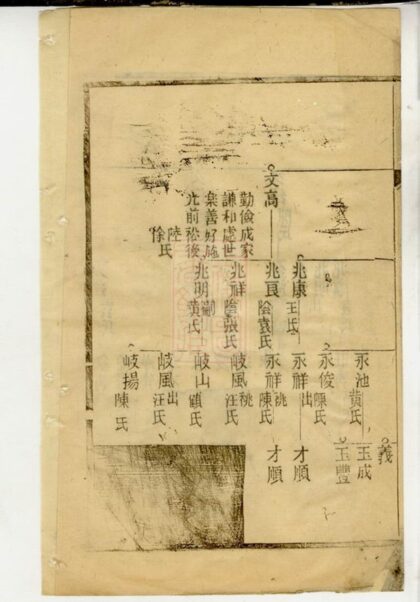 文高
勤儉成家
謙和處世
樂善好施
光前裕後
陸
徐氏
兆康 王氏
兆良 陰袁氏
兆祥 陰張氏
兆明 黃氏
永池 黃氏
永俊 陳氏
永祥 出
永祥 祧 陳氏
岐風 祧 汪氏
岐山 顧氏
岐風 出 汪氏
岐揚 陳氏
義
玉成
玉豐
才順
才順